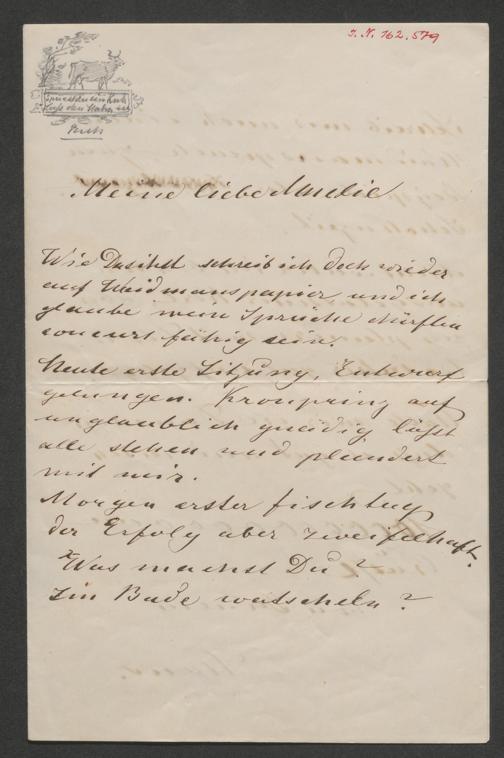 I. N. 162.579
Spricht du ein Kuh
Ruh
Meine liebe Amelie
Wie Du siehst schreib ich doch wieder
auf Weidmanspapier, und ich
glaube mein Sprüche dürften
concurs fähig sein.
Heute erste Sitzung, Entwurf
gelungen. Kronprinz auf
unglaublich gnädig läßt
alle stehen und plaudert
mit mir.
Morgen erster Fischtug
der Erfolg aber zweifelhaft.
Was machst Du?
Im Bade watscheln?